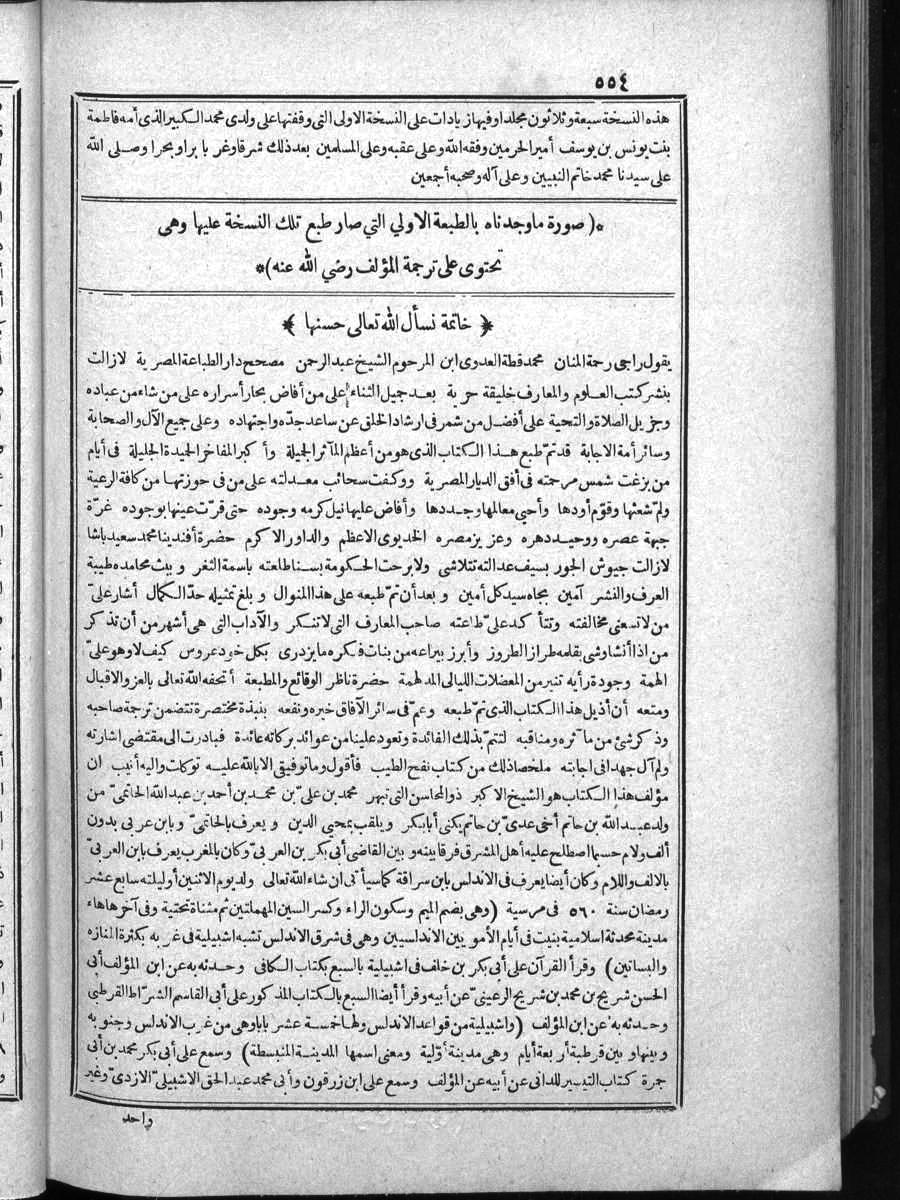 ٥٥٤
هذه النسخة سبعة وثلاثون مجلدا وفيها زيادات على النسخة الاولى التى وقفتها على ولدى محمد الكبير الذى أمه فاطمة
بنت يونس بن يوسف أمير الحرمين وفقه الله وعلى عقبه وعلى المسلمين بعد ذلك شرقا وغربا برا وبحرا وصلى الله
على سيدنا محمد خاتم النبيين وعلى آله وصحبه أجمعين
*( صورة ما وجدناه بالطبعة الاولي التي صار طبع تلك النسخة عليها وهى
تحتوى على ترجمة المؤلف رضي الله عنه )*
﴿ خاتمة نسأل الله تعالى حسنها ﴾
يقول راجى رحمة المنان محمد قطة العدوى ابن المرحوم الشيخ عبد الرحمن مصحح دار الطباعة المصرية لازالت
بنشر كتب العلوم والمعارف خليقة حرية بعد جميل الثناء على من أفاض بحار أسراره على من شاء من عباده
وجزيل الصلاة والتحية على أفضل من شمر فى ارشاد الخلق عن ساعد جدّه واجتهاده وعلى جميع الآل والصحابة
وسائر أمة الاجابة قد تمّ طبع هذا الكتاب الذى هو من أعظم المآثر الجميلة وأكبر المفاخر الجيدة الجليلة فى أيام
من بزغت شمس مرحمته فى أفق الديار المصرية ووكفت سحائب معدلته على من فى حوزتها من كافة الرعية
ولمّ شعثها وقوّم أودها وأحيى معالمها وجددها وأفاض عليها نيل كرمه وجوده حتى قرّت عينها بوجوده غرّة
جبهة عصره ووحيد دهره وعزيز مصره الخديوى الاعظم والداور الاكرم حضرة أفندينا محمد سعيد باشا
لازالت جيوش الجور بسيف عدالته تتلاشى ولا برحت الحكومة بسنا طلعته باسمة الثغر وببث محامده طيبة
العرف والنشر آمين بجاه سيد كل أمين وبعد أن تمّ طبعه على هذا المنوال وبلغ تمثيله حدّ الكمال أشار علىّ
من لا تسعنى مخالفته وتتأكد علىّ طاعته صاحب المعارف التى لا تنكر والآداب التى هى أشهر من أن تذكر
من اذا أنشا وشى بقلمه طراز الطروز وأبرز ببراعه من بنات فكره ما يزدرى بكل خود عروس كيف لا وهو علىّ
الهمة وجودة رأيه تنير من المعضلات الليالى المدلهمة حضرة ناظر الوقائع والمطبعة أتحفه الله تعالى بالعز والاقبال
ومتعه أن أذيل هذا الكتاب الذى تمّ طبعه وعمّ فى سائر الآفاق خيره ونفعه بنبذة مختصرة تتضمن ترجمة صاحبه
وذكر شئ من مآثره ومناقبه لتتمّ بذلك الفائدة وتعود علينا من عوائد بركاته عائدة فبادرت الى مقتضى اشارته
ولم آل جهدا فى اجابته ملخصا ذلك من كتاب نفح الطيب فأقول وما توفيقى الا بالله عليه توكلت واليه أنيب ان
مؤلف هذا الكتاب هو الشيخ الاكبر ذو المحاسن التى تبهر محمد بن علىّ بن محمد بن أحمد بن عبد الله الحاتمىّ من
ولد عبد الله بن حاتم أخى عدىّ بن حاتم يكنى أبا بكر ويلقب بمحيى الدين ويعرف بالحاتمىّ وبابن عربى بدون
ألف ولام حسبما اصطلح عليه أهل المشرق فرقا بينه وبين القاضى أبى بكر بن العربىّ وكان بالمغرب يعرف بابن العربىّ
بالالف واللام وكان أيضا يعرف فى الاندلس بابن سراقة كما سيأتى ان شاء الله تعالى ولد يوم الاثنين أوليلته سابع عشر
رمضان سنة ٥٦٠ فى مرسية (وهى بضم الميم وسكون الراء وكسر السين المهملتين ثم مثناة تحتية وفى آخرها هاء
مدينة محدثة اسلامية بنيت فى أيام الأمويين الاندلسيين وهى فى شرق الاندلس تشبه اشبيلية فى غربه بكثرة المنازه
والبساتين) وقرأ القرآن على أبى بكر بن خلف فى اشبيلية بالسبع بكتاب الكافى وحدثه به عن ابن المؤلف أبى
الحسن شريح بن محمد بن شريح الرعينىّ عن أبيه وقرأ أيضا السبع بالكتاب المذكور على أبى القاسم الشرّاط القرطبى
وحدثه به عن ابن المؤلف (واشبيلية من قواعد الاندلس ولها خمسة عشر بابا وهى من غرب الاندلس وجنوبه
وبينها وبين قرطبة أربعة أيام وهى مدينة أوّلية ومعنى اسمها المدينة المنبسطة) وسمع على أبى بكر محمد بن أبى
جمرة كتاب التيسير للدانى عن أبيه عن المؤلف وسمع على ابن زرقون وأبى محمد عبد الحق الاشبيلىّ الازدىّ وغير
واحد